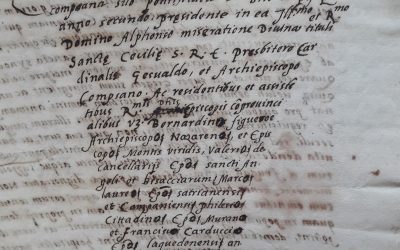 compsana sub pontificatu
anno secundo presidente in ea Ill.mo et R.mo
Domino Alphonso miseratione Divina tituli
Sanctę Cecilię S. R. E. Presbitero Car
dinalis Gesualdo, et Archiepiscopo
Compsano. Ac residentibus et assiste
tibus R.mis episcopis conprovinci
alibus Vz. Bernardino figueroé
Archiepiscopo Nazareno, et Epi
scopo Montis viridis, Valerio de
cancellarijs Epo sancti An
gele et bisacciarum Marco
laureo Epo satrianensis
et Campaniensis philene
Cittadino Epo Murano
et Francino Carduccio
Epo laquedonensis an